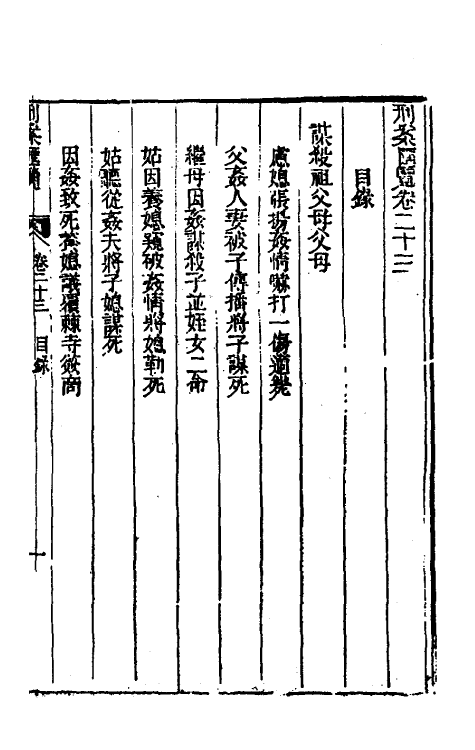 刑案匯覽卷二十三
目錄
謀殺祖父母父母
慮媳張揚姦情嚇打一傷適斃
父姦人妻被子傳播將子謀死
繼母因姦謀殺子並姪女二命
姑因養媳窺破姦情將媳勒死
姑聽從姦夫將子媳謀死
因姦致死養媳議覆棘寺簽商
刑案匯覽 卷二十三 目錄 一